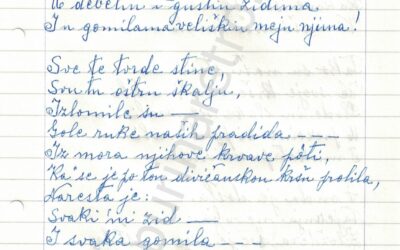 U debelin i gustin zidima
I u gomilama veliskin meju njima!
Sve te tvrde stine,
Svu tu oštru škalju,
Izlomile su —
Gole ruke naših pradida ---
Iz mora njihove krvave pôti,
Ka se je po ton divičanskon kršu prolila,
Naresla je:
Svaki 'ni zid —
I svaka gomila ---